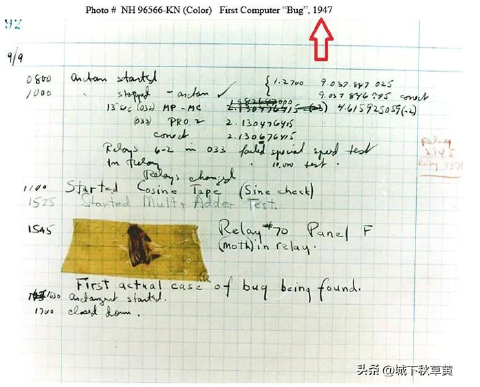 Photo # NH 96566-KN (Color) First Computer “Bug”, 1947
92
9/9
0800 antan started
1000 " stopped - antan ✓
{ 1.2700 9.037 847 025
9.037 846 995 conect
13"uc (032) MP-MC 1.982647000
2.130476415 (-3) 4.615925059(-2)
(033) PRO 2 2.130476415
conect 2.130676415
Relays 6-2 in 033 failed special speed test
in Relay " 10.000 test.
Relays changed
Relay
2145
1100 Started Cosine Tape (Sine check)
1525 Started Mult+Adder Test.
1545 Relay #70 Panel F
(Moth) in relay.
First actual case of bug being found.
1630 antangent started.
1700 closed down.
头条@城下秋草黄